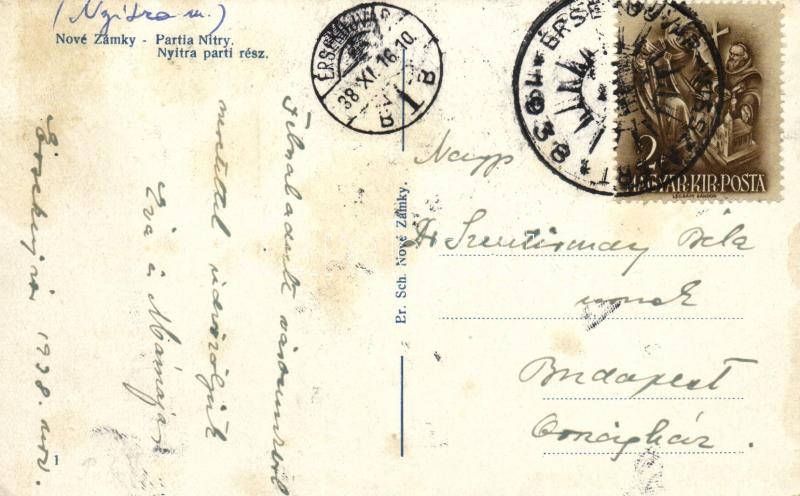 (Nyitra m.)
Nové Zámky - Partia Nitry.
Nyitra parti rész.
ÉRSEKUJVÁR
38 XI. 16. 10
1
938 ÉRSEKUJVÁR VISSZATÉRT
2
MAGYAR·KIR·POSTA
LÉGRÁDY SÁNDOR
Felszabadult városunkból
mostettel üdvözöljük
Éva és Mámája
Érsekujvár 1938. nov.
Pr. Sch. Nové Zámky.
Nagys
Dr Szentirmay Béla
urnak
Budapest
Országház.
1